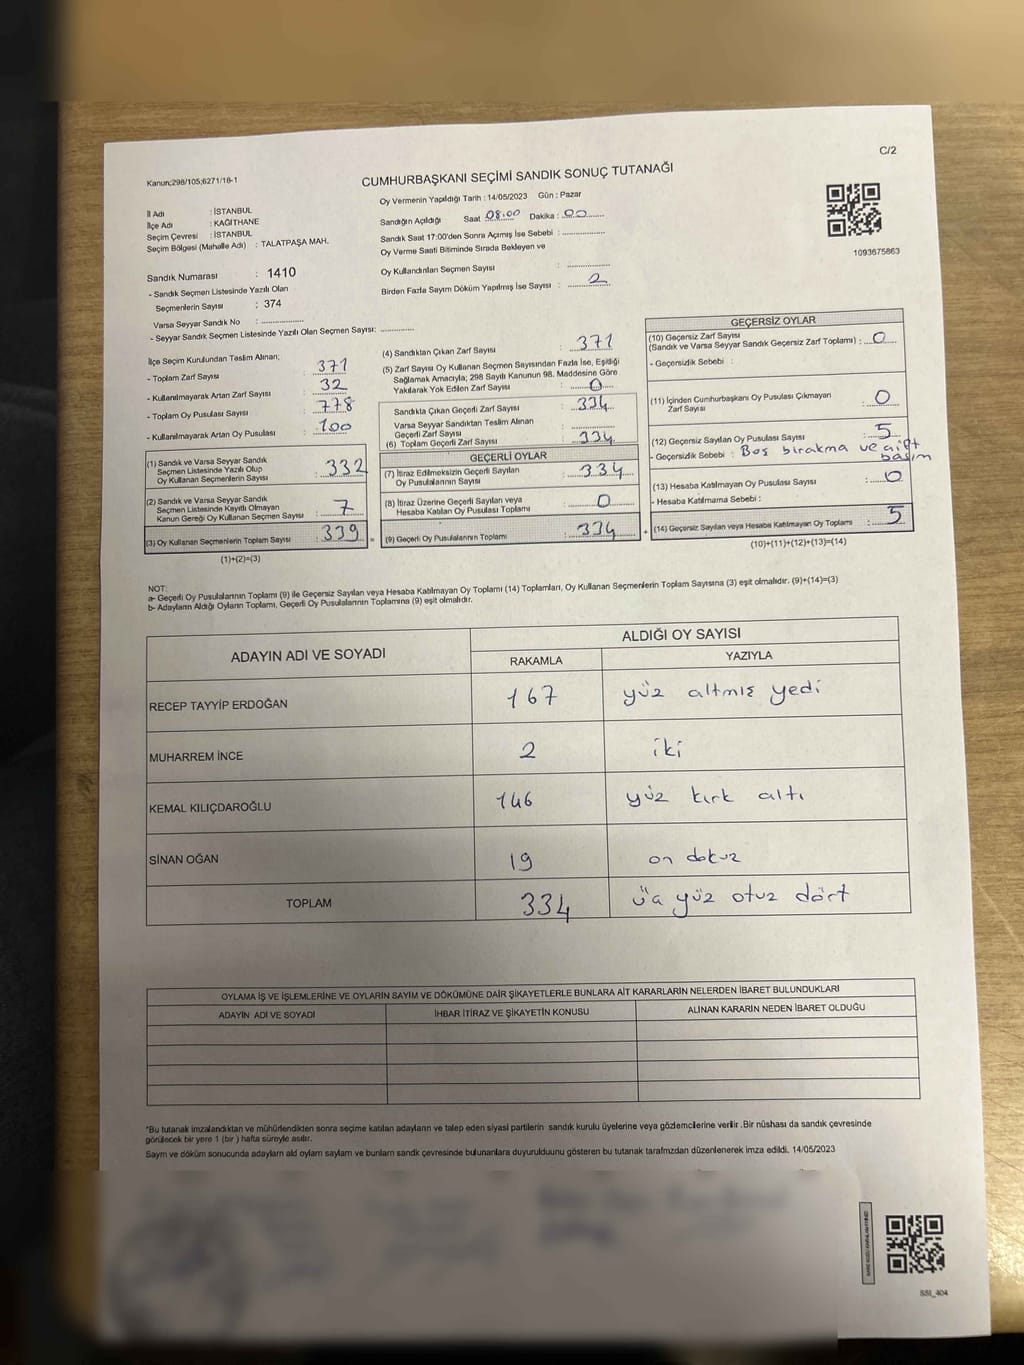 C/2
Kanun;298/105;6271/18-1
CUMHURBAŞKANI SEÇİMİ SANDIK SONUÇ TUTANAĞI
1093675863
İl Adı : İSTANBUL
İlçe Adı : KAĞITHANE
Seçim Çevresi : İSTANBUL
Seçim Bölgesi (Mahalle Adı) : TALATPAŞA MAH.
Sandık Numarası : 1410
- Sandık Seçmen Listesinde Yazılı Olan
Seçmenlerin Sayısı : 374
Varsa Seyyar Sandık No : ..............
- Seyyar Sandık Seçmen Listesinde Yazılı Olan Seçmen Sayısı: ............
Oy Vermenin Yapıldığı Tarih : 14/05/2023 Gün : Pazar
Sandığın Açıldığı Saat 08:00 Dakika : 00
Sandık Saat 17:00'den Sonra Açımış İse Sebebi : ..............
Oy Verme Saati Bitiminde Sırada Bekleyen ve
Oy Kullandırılan Seçmen Sayısı : ..............
Birden Fazla Sayım Döküm Yapılmış İse Sayısı : 2
İlçe Seçim Kurulundan Teslim Alınan;
- Toplam Zarf Sayısı : 371
- Kullanılmayarak Artan Zarf Sayısı : 32
- Toplam Oy Pusulası Sayısı : 778
- Kullanılmayarak Artan Oy Pusulası : 100
(1) Sandık ve Varsa Seyyar Sandık
Seçmen Listesinde Yazılı Olup
Oy Kullanan Seçmenlerin Sayısı : 332
(2) Sandık ve Varsa Seyyar Sandık
Seçmen Listesinde Kayıtlı Olmayan
Kanun Gereği Oy Kullanan Seçmen Sayısı : 7
(3) Oy Kullanan Seçmenlerin Toplam Sayısı : 339
(1)+(2)=(3)
(4) Sandıktan Çıkan Zarf Sayısı : 371
(5) Zarf Sayısı Oy Kullanan Seçmen Sayısından Fazla İse, Eşitliği
Sağlamak Amacıyla; 298 Sayılı Kanunun 98. Maddesine Göre
Yakılarak Yok Edilen Zarf Sayısı : 0
Sandıkta Çıkan Geçerli Zarf Sayısı : 334
Varsa Seyyar Sandıktan Teslim Alınan
Geçerli Zarf Sayısı
(6) Toplam Geçerli Zarf Sayısı : 334
GEÇERLİ OYLAR
(7) İtiraz Edilmeksizin Geçerli Sayılan
Oy Pusulasının Sayısı : 334
(8) İtiraz Üzerine Geçerli Sayılan veya
Hesaba Katılan Oy Pusulası Toplamı : 0
(9) Geçerli Oy Pusulalarının Toplamı : 334
GEÇERSİZ OYLAR
(10) Geçersiz Zarf Sayısı
(Sandık ve Varsa Seyyar Sandık Geçersiz Zarf Toplamı) : 0
- Geçersizlik Sebebi :
(11) İçinden Cumhurbaşkanı Oy Pusulası Çıkmayan
Zarf Sayısı : 0
(12) Geçersiz Sayılan Oy Pusulası Sayısı : 5
- Geçersizlik Sebebi : Boş bırakma ve çift
basım
(13) Hesaba Katılmayan Oy Pusulası Sayısı : 0
- Hesaba Katılmama Sebebi :
(14) Geçersiz Sayılan veya Hesaba Katılmayan Oy Toplamı : 5
(10)+(11)+(12)+(13)=(14)
NOT:
a- Geçerli Oy Pusulalarının Toplamı (9) ile Geçersiz Sayılan veya Hesaba Katılmayan Oy Toplamı (14) Toplamları, Oy Kullanan Seçmenlerin Toplam Sayısına (3) eşit olmalıdır. (9)+(14)=(3)
b- Adayların Aldığı Oyların Toplamı, Geçerli Oy Pusulalarının Toplamına (9) eşit olmalıdır.
ADAYIN ADI VE SOYADI ALDIĞI OY SAYISI
RAKAMLA YAZIYLA
RECEP TAYYİP ERDOĞAN 167 yüz altmış yedi
MUHARREM İNCE 2 iki
KEMAL KILIÇDAROĞLU 146 yüz kırk altı
SİNAN OĞAN 19 on dokuz
TOPLAM 334 üç yüz otuz dört
OYLAMA İŞ VE İŞLEMLERİNE VE OYLARIN SAYIM VE DÖKÜMÜNE DAİR ŞİKAYETLERLE BUNLARA AİT KARARLARIN NELERDEN İBARET BULUNDUKLARI
ADAYIN ADI VE SOYADI İHBAR İTİRAZ VE ŞİKAYETİN KONUSU ALINAN KARARIN NEDEN İBARET OLDUĞU
*Bu tutanak imzalandıktan ve mühürlendikten sonra seçime katılan adayların ve talep eden siyasi partilerin sandık kurulu üyelerine veya gözlemcilerine verilir .Bir nüshası da sandık çevresinde
görülecek bir yere 1 (bir ) hafta süreyle asılır.
Sayım ve döküm sonucunda adayların ald oyların sayların ve bunların sandk çevresinde bulunanlara duyurulduunu gösteren bu tutanak tarafmzdan düzenlenerek imza edildi. 14/05/2023
SSI_404